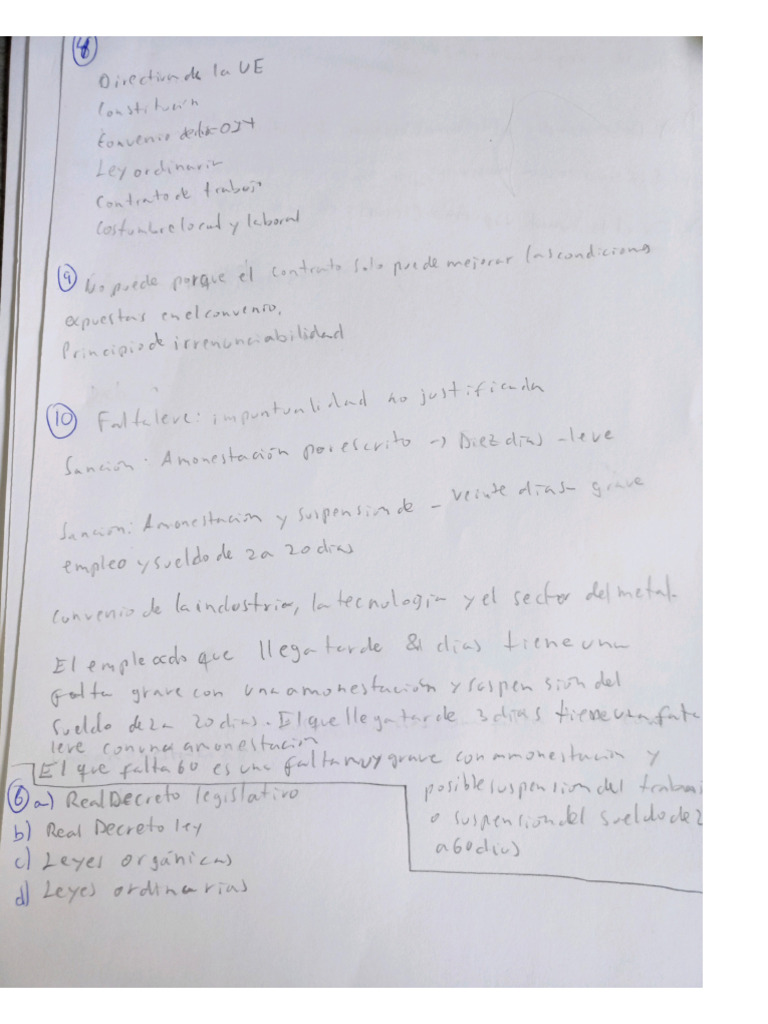 8
Directiva de la UE
Constitución
Convenio de la OIT
Ley ordinaria
Contrato de trabajo
Costumbre local y laboral
9 No puede porque el contrato solo puede mejorar las condiciones
expuestas en el convenio.
Principio de irrenunciabilidad
10 Falta leve: impuntualidad no justificada
Sanción: Amonestación por escrito → Diez días - leve
Sanción: Amonestación y suspensión de - veinte días - grave
empleo y sueldo de 2 a 20 días
Convenio de la industria, la tecnología y el sector del metal.
El empleado que llega tarde días tiene una
falta grave con una amonestación y suspensión del
sueldo de 2 a 20 días. El que llega tarde 3 días tiene una falta
leve con una amonestación
El que falta 60 es una falta muy grave con ammonestación y
posible suspension del trabajo
o suspension del sueldo de 2
a 60 dias
6 a) Real Decreto legislativo
b) Real Decreto ley
c) Leyes orgánicas
d) Leyes ordinarias